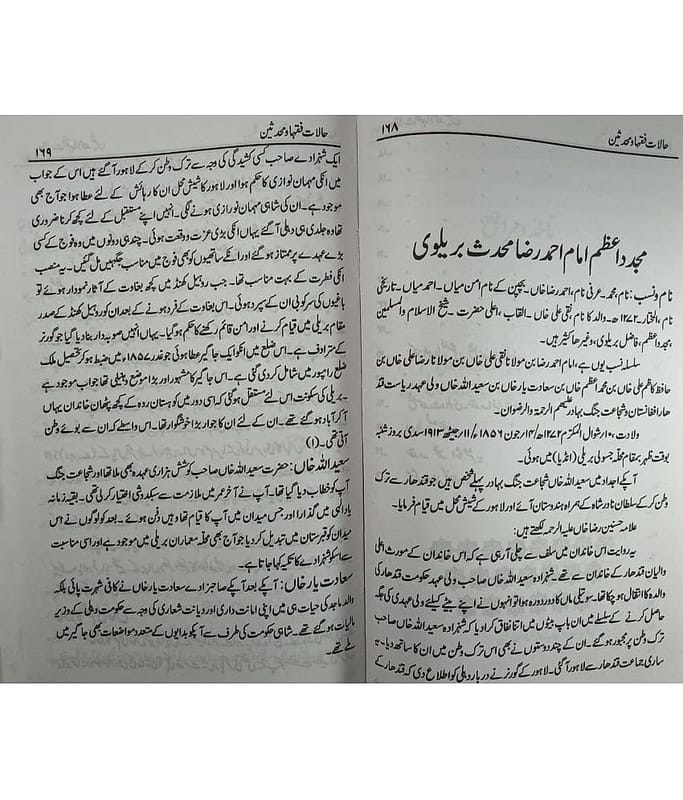 حالات فقہا و محدثین
۱۶۸
مجدد اعظم امام احمد رضا محدث بریلوی
نام و نسب: نام، محمد۔ عرفی نام، احمد رضا خاں۔ بچپن کے نام امن میاں، احمد میاں۔ تاریخی
نام، المختار۔ ۱۲۷۲ھ۔ والد کا نام نقی علی خاں۔ القاب، اعلی حضرت۔ شیخ الاسلام والمسلمین
مجدد اعظم، فاضل بریلوی، وغیرھا کثیر ہیں۔
سلسلہ نسب یوں ہے، امام احمد رضا بن مولانا نقی علی خاں بن مولانا رضا علی خاں بن
حافظ کاظم علی خاں بن محمد اعظم خاں بن سعادت یار خاں بن سعید اللہ خاں ولی عہد ریاست قند
ھار افغانستان و شجاعت جنگ بہادر علیہم الرحمۃ والرضوان۔
ولادت، ۱۰/شوال المکرم ۱۲۷۲ھ/۱۴/جون ۱۸۵۶/۱۱/جیٹھ ۱۹۱۳ سدی بروز شنبہ
بوقت ظہر بمقام محلہ جسولی بریلی (انڈیا) میں ہوئی۔
آپکے اجداد میں سعید اللہ خاں شجاعت جنگ بہادر پہلے شخص ہیں جو قندھار سے ترک
وطن کر کے سلطان نادر شاہ کے ہمراہ ہندوستان آئے اور لاہور کے شیش محل میں قیام فرمایا۔
علامہ حسنین رضا خاں علیہ الرحمہ لکھتے ہیں:
یہ روایت اس خاندان میں سلف سے چلی آرہی ہے کہ اس خاندان کے مورث اعلی
والیان قندھار کے خاندان سے تھے۔ شہزادہ سعید اللہ خاں صاحب ولی عہد حکومت قندھار کی
والدہ کا انتقال ہو چکا تھا۔ سوتیلی ماں کا دور دورہ ہوا تو انہوں نے اپنے بیٹے کیلئے ولی عہدی کی جگہ
حاصل کرنے کے سلسلے میں ان باپ بیٹوں میں اتنا نفاق کرادیا کہ شہزادہ سعید اللہ خاں صاحب
ترک وطن پر مجبور ہو گئے۔ ان کے چند دوستوں نے بھی اس ترک وطن میں ان کا ساتھ دیا۔ یہ
ساری جماعت قندھار سے لاہور آگئی۔ لاہور کے گورنر نے دربار دہلی کو اطلاع دی کہ قندھار کے
حالات فقہا و محدثین
۱۶۹
ایک شہزادے صاحب کسی کشیدگی کی وجہ سے ترک وطن کر کے لاہور آگئے ہیں اس کے جواب
میں انکی مہمان نوازی کا حکم ہوا اور لاہور کا شیش محل ان کا رہائش کے لئے عطا ہوا جو آج بھی
موجود ہے۔ ان کی شاہی مہمان نورازی ہونے لگی۔ انہیں اپنے مستقبل کے لئے کچھ کرنا ضروری
تھا وہ جلدی ہی دہلی آگئے یہاں انکی بڑی عزت و وقعت ہوئی۔ چند ہی دونوں میں وہ فوج کے کسی
بڑے عہدے پر ممتاز ہو گئے اور انکے ساتھیوں کو بھی فوج میں مناسب جگہیں مل گئیں۔ یہ منصب
انکی فطرت کے بہت مناسب تھا۔ جب روہیل کھنڈ میں کچھ بغاوت کے آثار نمودار ہوئے تو
باغیوں کی سرکوبی ان کے سپرد ہوئی۔ اس بغاوت کے فرد ہونے کے بعد ان کو روہیل کھنڈ کے صدر
مقام بریلی میں قیام کرنے اور امن قائم رکھنے کا حکم ہو گیا۔ یہاں انہیں صوبہ دار بنا دیا گیا جو گورنر
کے مترادف ہے۔ اس ضلع میں انکو ایک جاگیر عطا ہوئی جو غدر ۱۸۵۷ء میں ضبط ہو کر تحصیل ملک
ضلع رامپور میں شامل کر دی گئی ہے۔ اس جاگیر کا مشہور اور بڑا موضع دھنیلی تھا جو اب موجود ہے
۔ بریلی کی سکونت اس لئے مستقل ہوگئی کہ اسی دور میں کوہستان روہ کے کچھ پٹھان خاندان یہاں
آکر آباد ہو گئے تھے۔ ان کے لئے ان کا جوار بڑا خوشگوار تھا۔ اس واسطے کہ ان سے بوئے وطن
آتی تھی۔ (۱)
سعید اللہ خاں: حضرت سعید اللہ خاں صاحب کو شش ہزاری عہدہ بھی ملا تھا اور شجاعت جنگ
آپ کو خطاب دیا گیا تھا۔ آپ نے آخر عمر میں ملازمت سے سبکدوشی اختیار کر لی تھی۔ بقیہ زمانہ
یاد الہی میں گذارا اور جس میدان میں آپ کا قیام تھا وہیں دفن ہوئے۔ بعد کو لوگوں نے اس
میدان کو قبرستان میں تبدیل کر دیا جو آج بھی محلہ معماران بریلی میں موجود ہے اور اسی مناسبت
سے اسکو شہزادے کا تکیہ کہا جاتا ہے۔
سعادت یار خاں: آپکے بعد آپکے صاحبزادے سعادت یار خاں نے کافی شہرت پائی بلکہ
والد ماجد کی حیات ہی میں اپنی امانت داری اور دیانت شعاری کی وجہ سے حکومت دہلی کے وزیر
مالیات ہو گئے تھے۔ شاہی حکومت کی طرف سے آپکو بدایوں کے متعدد مواضعات بھی جاگیر میں
ملے تھے۔